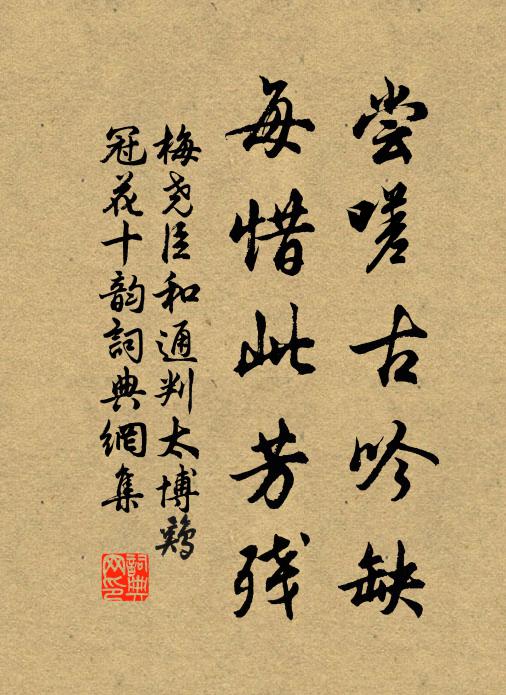 尝嗟古吟缺
每惜此芳残
梅尧臣和通判太博鸡
冠花十韵詞典網集
詞典网印